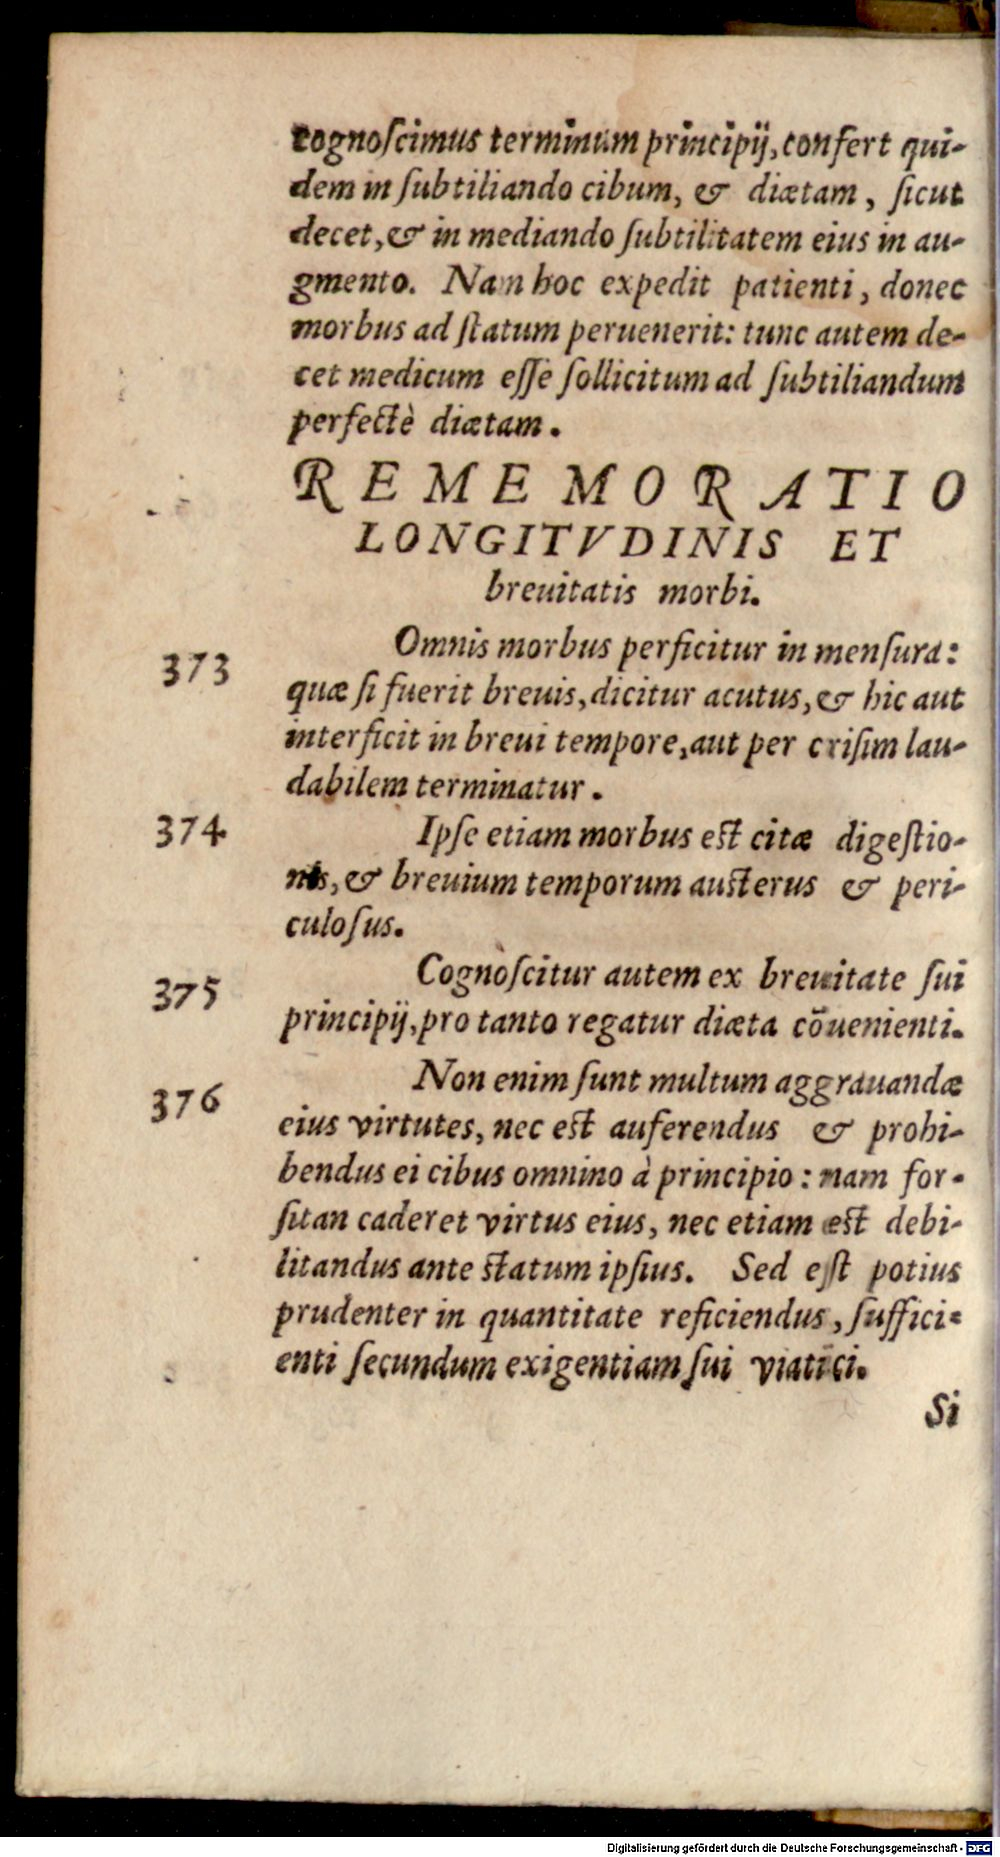 cognoſcimus terminum principij, confert qui-
dem in ſubtiliando cibum, & diætam, ſicut
decet, & in mediando ſubtilitatem eius in au-
gmento. Nam hoc expedit patienti, donec
morbus ad ſtatum peruenerit: tunc autem de-
cet medicum eſſe ſollicitum ad ſubtiliandum
perfectè diætam.
REMEMORATIO
LONGITVDINIS ET
breuitatis morbi.
373 Omnis morbus perficitur in menſura:
quæ ſi fuerit breuis, dicitur acutus, & hic aut
interficit in breui tempore, aut per criſim lau-
dabilem terminatur.
374 Ipſe etiam morbus eſt citæ digeſtio-
nis, & breuium temporum auſterus & peri-
culoſus.
375 Cognoſcitur autem ex breuitate ſui
principij, pro tanto regatur diæta cōuenienti.
376 Non enim ſunt multum aggrauandæ
eius virtutes, nec eſt auferendus & prohi-
bendus ei cibus omnino à principio: nam for-
ſitan caderet virtus eius, nec etiam eſt debi-
litandus ante ſtatum ipſius. Sed eſt potius
prudenter in quantitate reficiendus, ſuffici-
enti ſecundum exigentiam ſui viatici.
Si
Digitalisierung gefördert durch die Deutsche Forschungsgemeinschaft - DFG